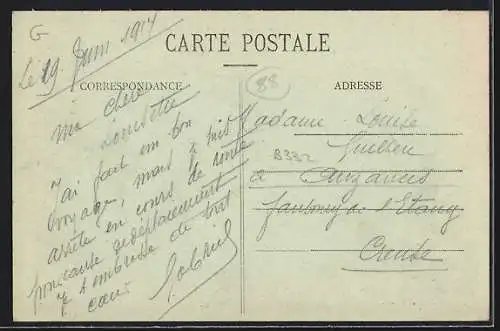 G
Le 19 Juin 1914
CARTE POSTALE
88
CORRESPONDANCE
ADRESSE
Ma chère
J'ai fait un bon
voyage, mais je suis
arrêté en cours de route
pour cause de déplacement
Je t'embrasse de tout
cœur
Gabriel
Madame Louise
8332
à Auzances
faubourg de l'Etang
Creuse